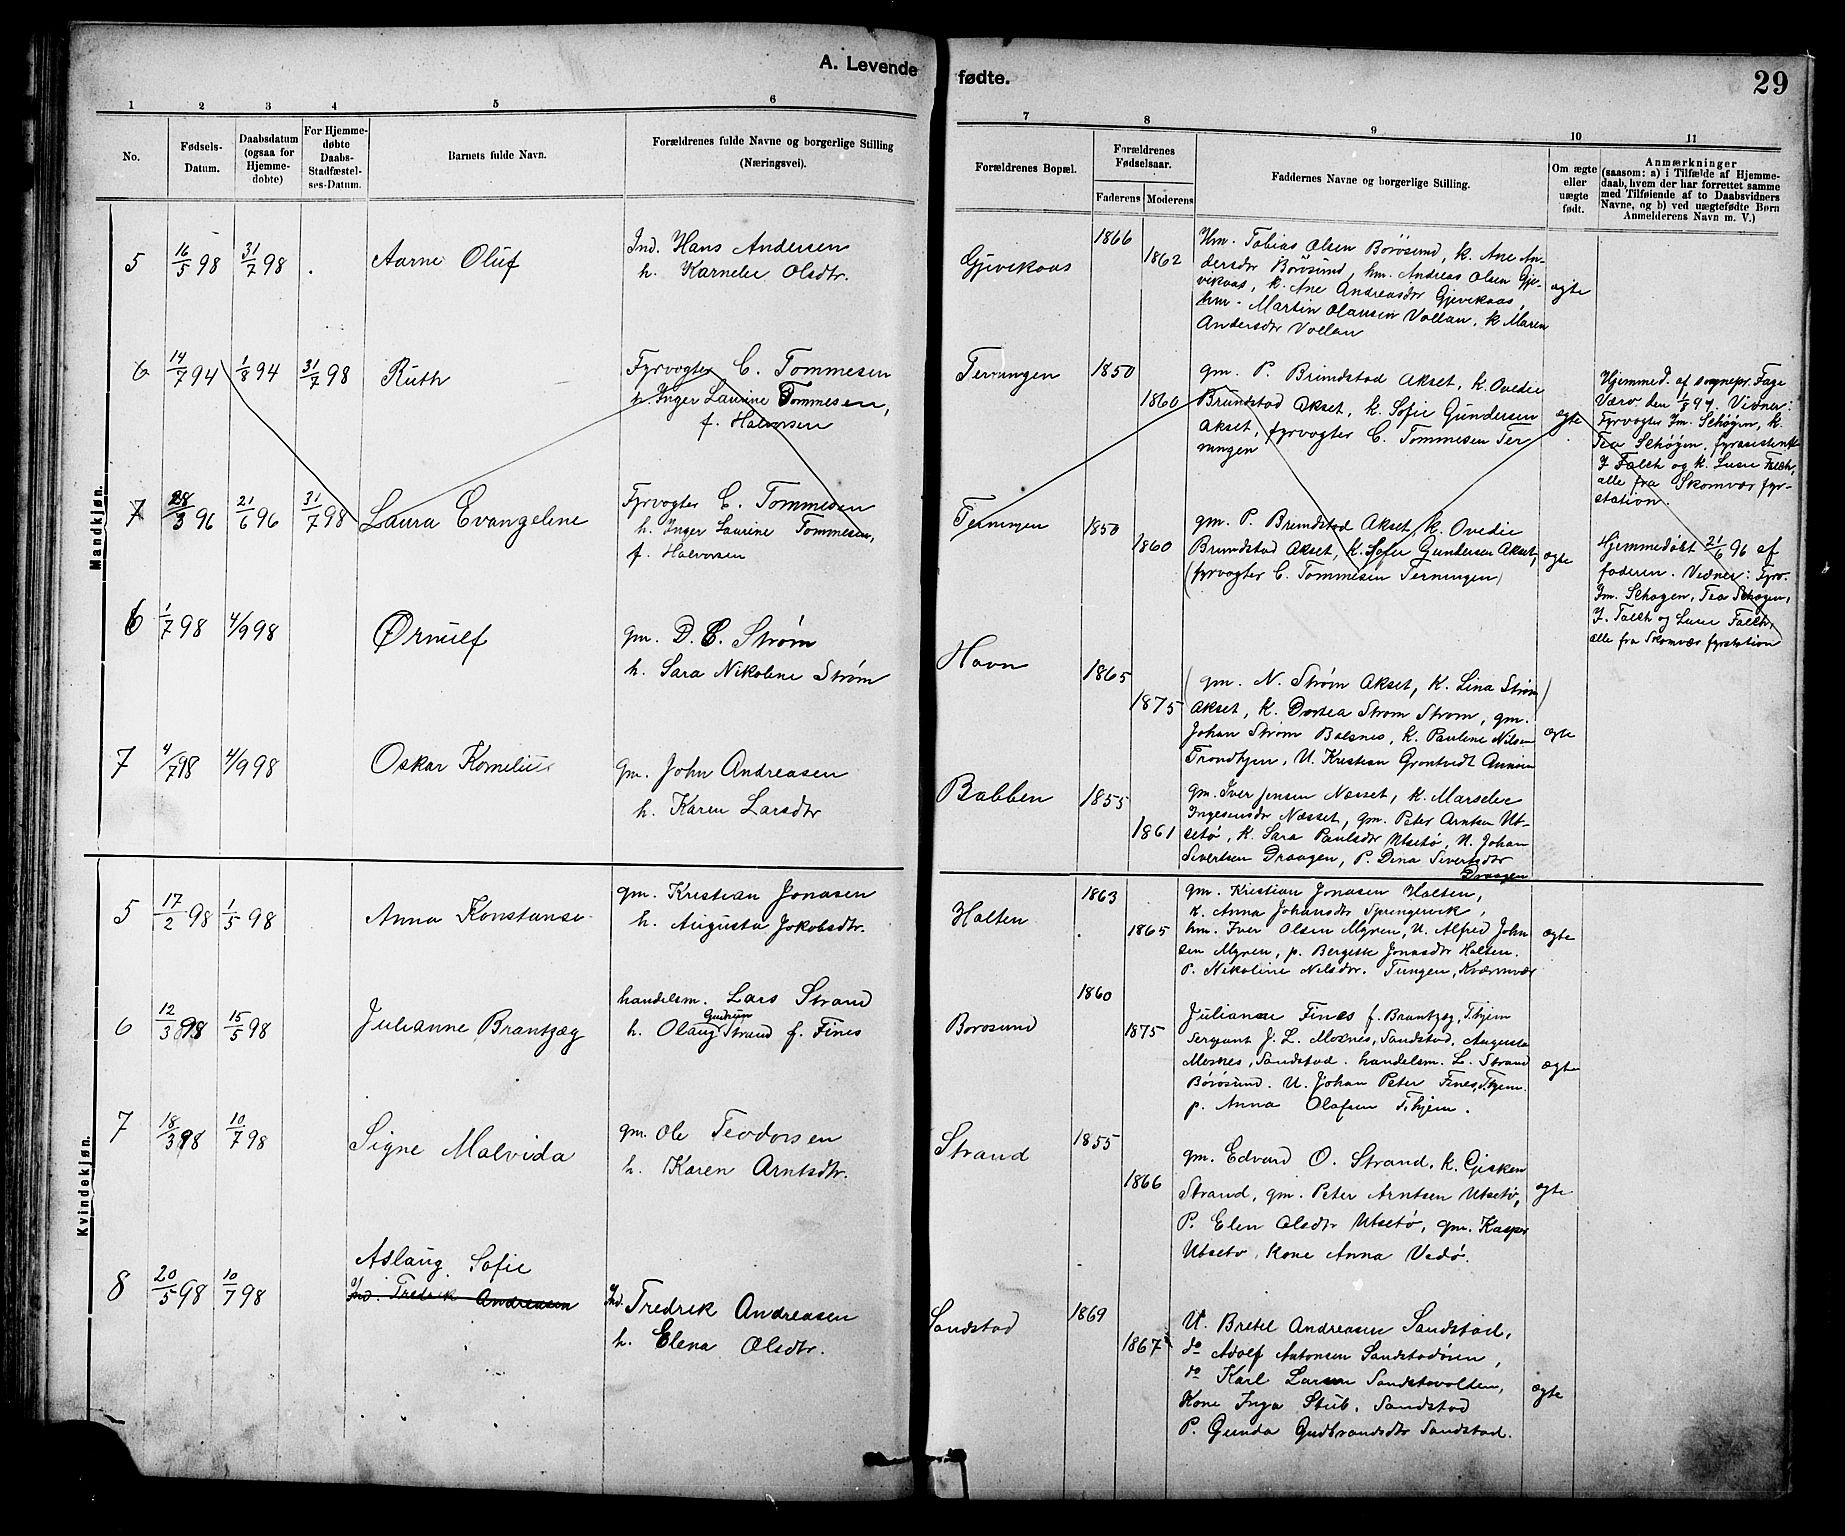 A. Levende
fødte.
29
1 2 3 4 5 6
7 8 9 10 11
No.
Fødsels-
Datum.
Daabsdatum
(ogsaa for
Hjemme-
døbte)
For Hjemme-
døbte
Daabs-
Stadfæstel-
ses-Datum.
Barnets fulde Navn.
Forældrenes fulde Navne og borgerlige Stilling
(Næringsvei).
Forældrenes Bopæl.
Forældrenes
Fødselsaar.
Faderens Moderens
Faddernes Navne og borgerlige Stilling.
Om ægte
eller
uægte
født.
Anmærkninger
(saasom: a) i Tilfælde af Hjemme-
daab, hvem der har forrettet samme
med Tilføiende af to Daabsvidners
Navne, og b) ved uægtefødte Børn
Anmelderens Navn m. V.)
Mandkjøn.
5 16/5 98 31/7 98 Aarne Oluf
Ind. Hans Andersen
h. Karnelie Olsdtr.
Gjevekaas
1866
1862
Hm. Tobias Olsen Borøsund, k. Ane An-
dersdr Borøsund, hm. Andreas Olsen Gje-
vekaas, k. Ane Andreasdr Gjevekaas,
hm. Martin Olausen Vollan, k. Maren
Andersdr Vollan
ægte
6 14/7 94 1/8 94 31/7 98 Ruth
Fyrvogter C. Tommesen
h. Inger Laurine Tommesen,
f. Halvorsen
Terningen
1850
1860
gm. P. Brundstad Akset, k. Ovedie
Brundstad Akset, k. Sofie Gundersen
Akset, fyrvogter C. Tommesen Ter
ningen
ægte
Hjemmed. af sognepr. Fage
Værø den 1/8 94. Vidner:
Fyrvogter Jm. Schøgen, k.
Tea Schøgen, fyrassistent
J Falch og k. Lusie Falch,
alle fra Skomvær fyr-
station.
7 28/3 96 21/6 96 31/7 98 Laura Evangeline
Fyrvogter C. Tommesen
h. Inger Laurine Tommesen,
f. Halvorsen
Terningen
1850
1860
gm. P. Brundstad Akset, k. Ovedie
Brundstad Akset, k. Sofie Gundersen Akset,
(fyrvogter C. Tommesen Terningen)
ægte
Hjemmedøbt 21/6 96 af
faderen. Vidner: Fyrv.
Jm. Schøgen, Tea Schøgen,
J. Falch og Lusie Falch,
alle fra Skomvær fyrstation
6 1/7 98 4/9 98 Ørnulf
gm. D. C. Strøm
h. Sara Nikoline Strøm
Havn
1865
1875
(gm. N. Strøm Akset, k. Lina Strøm)
Akset, k. Dortea Strøm Strøm, gm.
Johan Strøm Balsnes, k. Pauline Nilsen
Trondhjem, U. Kristian Grontvedt
ægte
7 4/7 98 4/9 98 Oskar Kornelius
gm. John Andreasen
h. Karen Larsdtr
Babben
1855
1861
gm. Iver Jensen Næsset, k. Marselie
Ingebrigtsdr Næsset, gm. Peter Arntsen Ut-
setø, k. Sara Paulsdr Utsetø, U. Johan
Sivertsen Draagen, P. Dina Sivertsdtr
Draagen
Kvindekjøn.
5 17/2 98 1/5 98 Anna Konstanse
gm. Kristian Jonasen
h. Augusta Jakobsdtr.
Halten
1863
1865
gm. Kristian Jonasen Halten,
k. Anna Johansdtr Springervik,
hm. Iver Olsen Myren, U. Alfred John
sen Myren, p. Bergitte Jonasdtr Halten.
P. Nikoline Nilsdtr. Tungen, Kværnvær
ægte
6 12/3 98 15/5 98 Julianne Brantzæg
handelsm. Lars Strand
Gudrun
h. Olaug Strand f. Fines
Borosund
1860
1875
Julianne Fines f. Brantzæg, T.hjem
Sergeant J. L. Moxnes, Sandstad, Augusta
Moxnes, Sandstad. handelsm. L. Strand
Børøsund. U. Johan Peter Fines, T.hjem.
p. Anna Olafsen T.hjem.
ægte
7 18/3 98 10/7 98 Signe Malvida
gm. Ole Teodorsen
h. Karen Arntsdtr.
Strand
1855
1866
gm. Edvard O. Strand, k. Gjisken
Strand, gm. Peter Arntsen Utsetø,
P. Elen Olsdtr Utsetø, gm. Kasper
Utsetø, Kone Anna Vedø.
ægte
8 20/5 98 10/7 98 Aslaug Sofie
Ind. Fredrik Andreasen
Ind. Fredrik Andreasen
h. Elena Olsdtr.
Sandstad
1869
1867
U. Bretel Andreasen Sandstad,
do Adolf Antonsen Sandstadøren,
do Karl Larsen Sandstavolden,
Kone Inga Stub, Sandstad
P. Gunda Gudbrandsdtr Sandstad.
ægte